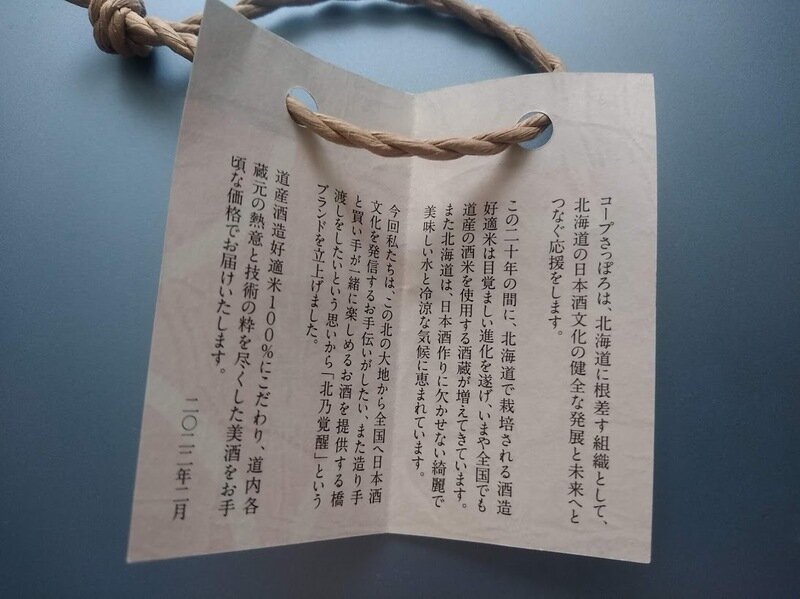 コープさっぽろは、北海道に根差す組織として、
北海道の日本酒文化の健全な発展と未来へと
つなぐ応援をします。
この二十年の間に、北海道で栽培される酒造
好適米は目覚ましい進化を遂げ、いまや全国でも
道産の酒米を使用する酒蔵が増えてきています。
また北海道は、日本酒作りに欠かせない綺麗で
美味しい水と冷涼な気候に恵まれています。
今回私たちは、この北の大地から全国へ日本酒
文化を発信するお手伝いがしたい、また造り手
と買い手が一緒に楽しめるお酒を提供する橋
渡しをしたいという思いから「北乃覚醒」という
ブランドを立上げました。
道産酒造好適米100%にこだわり、道内各
蔵元の熱意と技術の粋を尽くした美酒をお手
頃な価格でお届けいたします。
二〇二二年二月